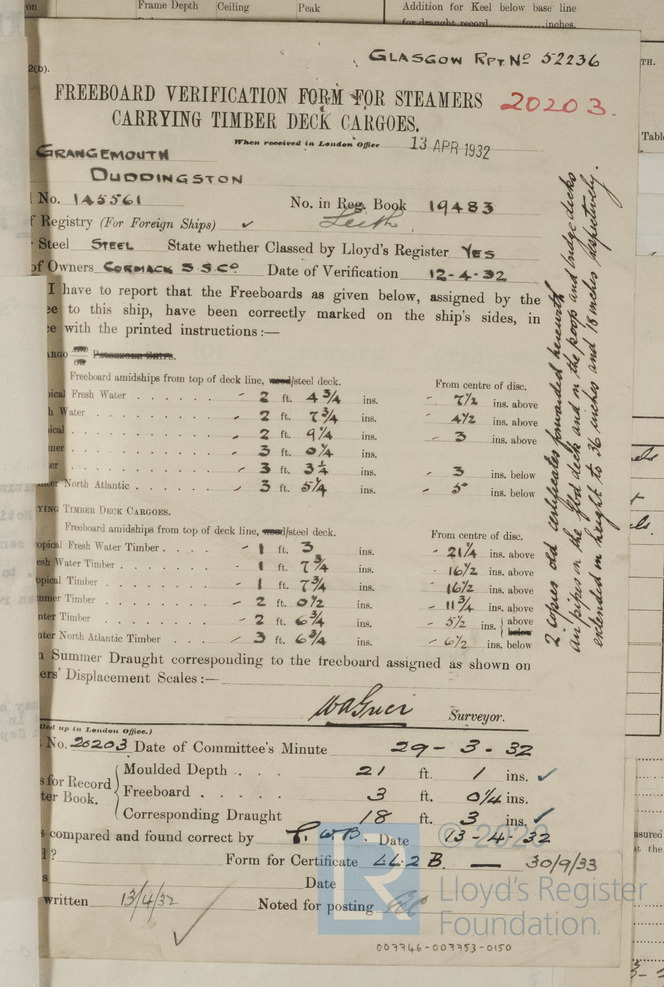 Frame Depth Ceiling Peak
Addition for Keel below base line
for draught record inches.
GLASGOW RPT No 52236
2(b).
FREEBOARD VERIFICATION FORM FOR STEAMERS
CARRYING TIMBER DECK CARGOES.
20203.
When received in London Office 13 APR 1932
GRANGEMOUTH
DUDDINGSTON
No. 145561 No. in Reg. Book 19483
f Registry (For Foreign Ships) ✓ Leith
Steel STEEL State whether Classed by Lloyd's Register YES
of Owners CORMACK S.S.Co Date of Verification 12-4-32
I have to report that the Freeboards as given below, assigned by the
ee to this ship, have been correctly marked on the ship's sides, in
ce with the printed instructions:—
ARGO
Freeboard amidships from top of deck line, wood/steel deck. From centre of disc.
pical Fresh Water - 2 ft. 4 3/4 ins. - 7 1/2 ins. above
h Water - 2 ft. 7 3/4 ins. - 4 1/2 ins. above
ical - 2 ft. 9 1/4 ins. - 3 ins. above
mer - 3 ft. 0 1/4 ins.
er - 3 ft. 3 1/4 ins. - 3 ins. below
ter North Atlantic - 3 ft. 5 1/4 ins. - 5 ins. below
YING TIMBER DECK CARGOES.
Freeboard amidships from top of deck line, wood/steel deck. From centre of disc.
opical Fresh Water Timber - 1 ft. 3 ins. - 21 1/4 ins. above
esh Water Timber - 1 ft. 7 3/4 ins. - 16 1/2 ins. above
opical Timber - 1 ft. 7 3/4 ins. - 16 1/2 ins. above
mmer Timber - 2 ft. 0 1/2 ins. - 11 3/4 ins. above
nter Timber - 2 ft. 6 3/4 ins. - 5 1/2 ins. above below
nter North Atlantic Timber - 3 ft. 6 3/4 ins. - 6 1/2 ins. below
n Summer Draught corresponding to the freeboard assigned as shown on
ers' Displacement Scales:—
Surveyor.
2 copies old certificates forwarded herewith
air pipes on the deck and on the poop and bridge decks
extended in height to 36 inches and 18 inches respectively.
ed up in London Office.)
No. 20203 Date of Committee's Minute 29-3-32
s for Record
ter Book.
Moulded Depth 21 ft. 1 ins. ✓
Freeboard 3 ft. 0 1/4 ins.
Corresponding Draught 18 ft. 3 ins. ✓
s compared and found correct by Date 13-4-32
l ? Form for Certificate LL.2B. — 30/9/33
s Date
written 13/4/32 Noted for posting
✓
© 2020
Lloyd's Register
Foundation
LR
007746-007753-0150